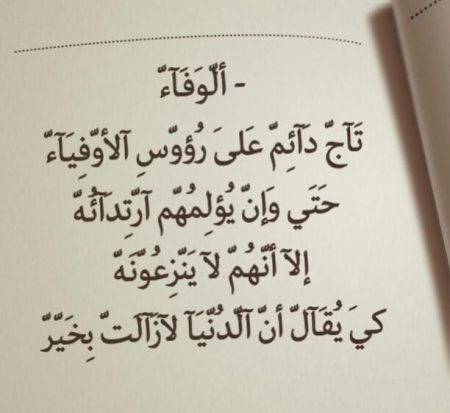 - ألّوَفَآءّ
تَآجّ دَآئِمّ عَلَىَ رُؤوّسِ آلأوّفِيَآءّ
حَتَي وَإنّ يُؤلِمُهّم آرّتِدآئُهّ
إلآ أنّهُمّ لآ يَنّزِعُوّنَهّ
كيَ يُقَآلّ أنّ آلّدُنّيَآ لآزَآلَتّ بِخَيَرّ